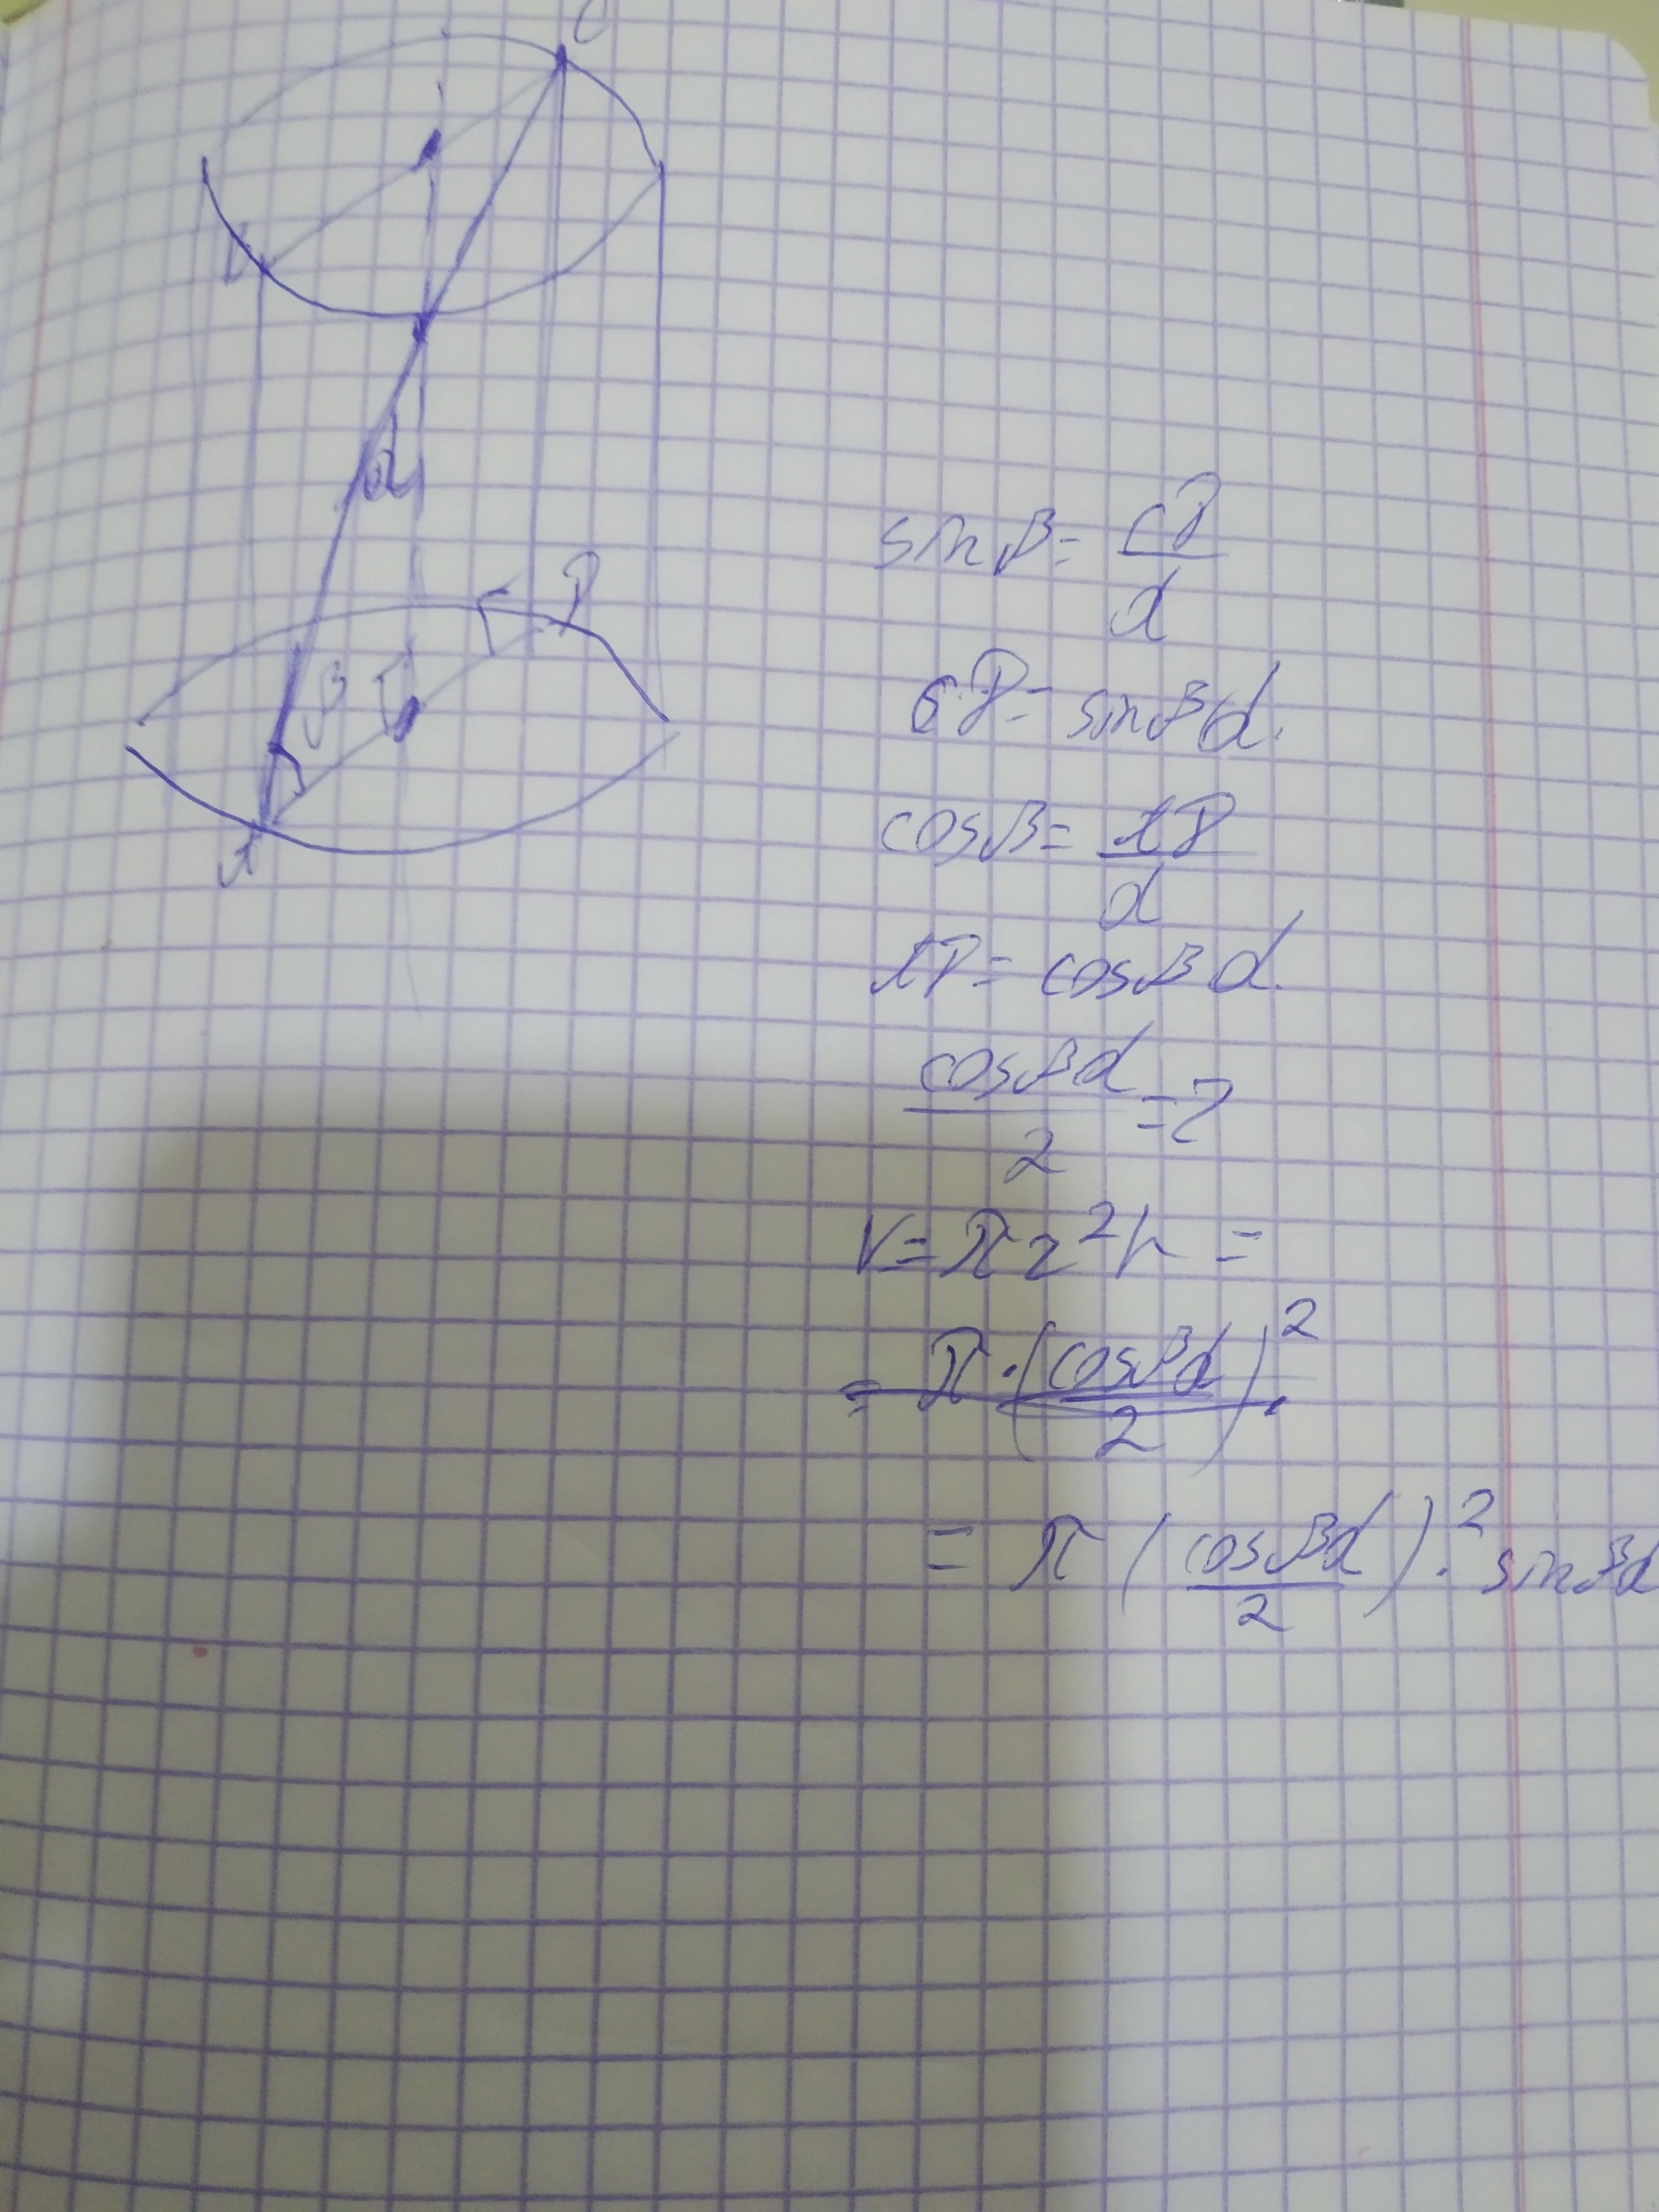 C
B
d
P
β
A
sinβ = CP/d
CP = sinβd.
cosβ = AP/d
AP = cosβd.
cosβd/2 = r
V = πr²h =
= π·(cosβd/2)²·
= π(cosβd/2)²·sinβd